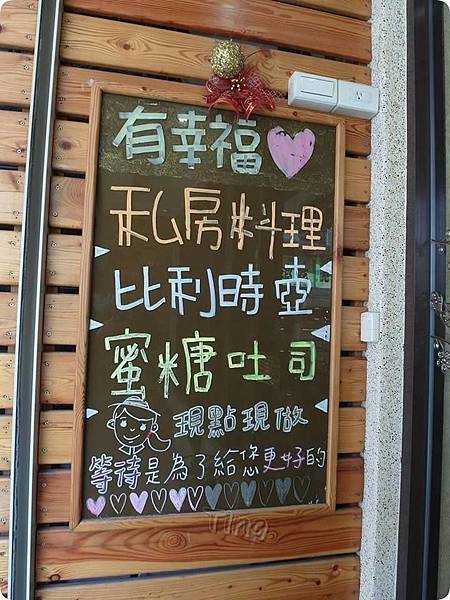 有幸福
私房料理
比利時壺
蜜糖吐司
現點現做
等待是為了給您更好的
Ting